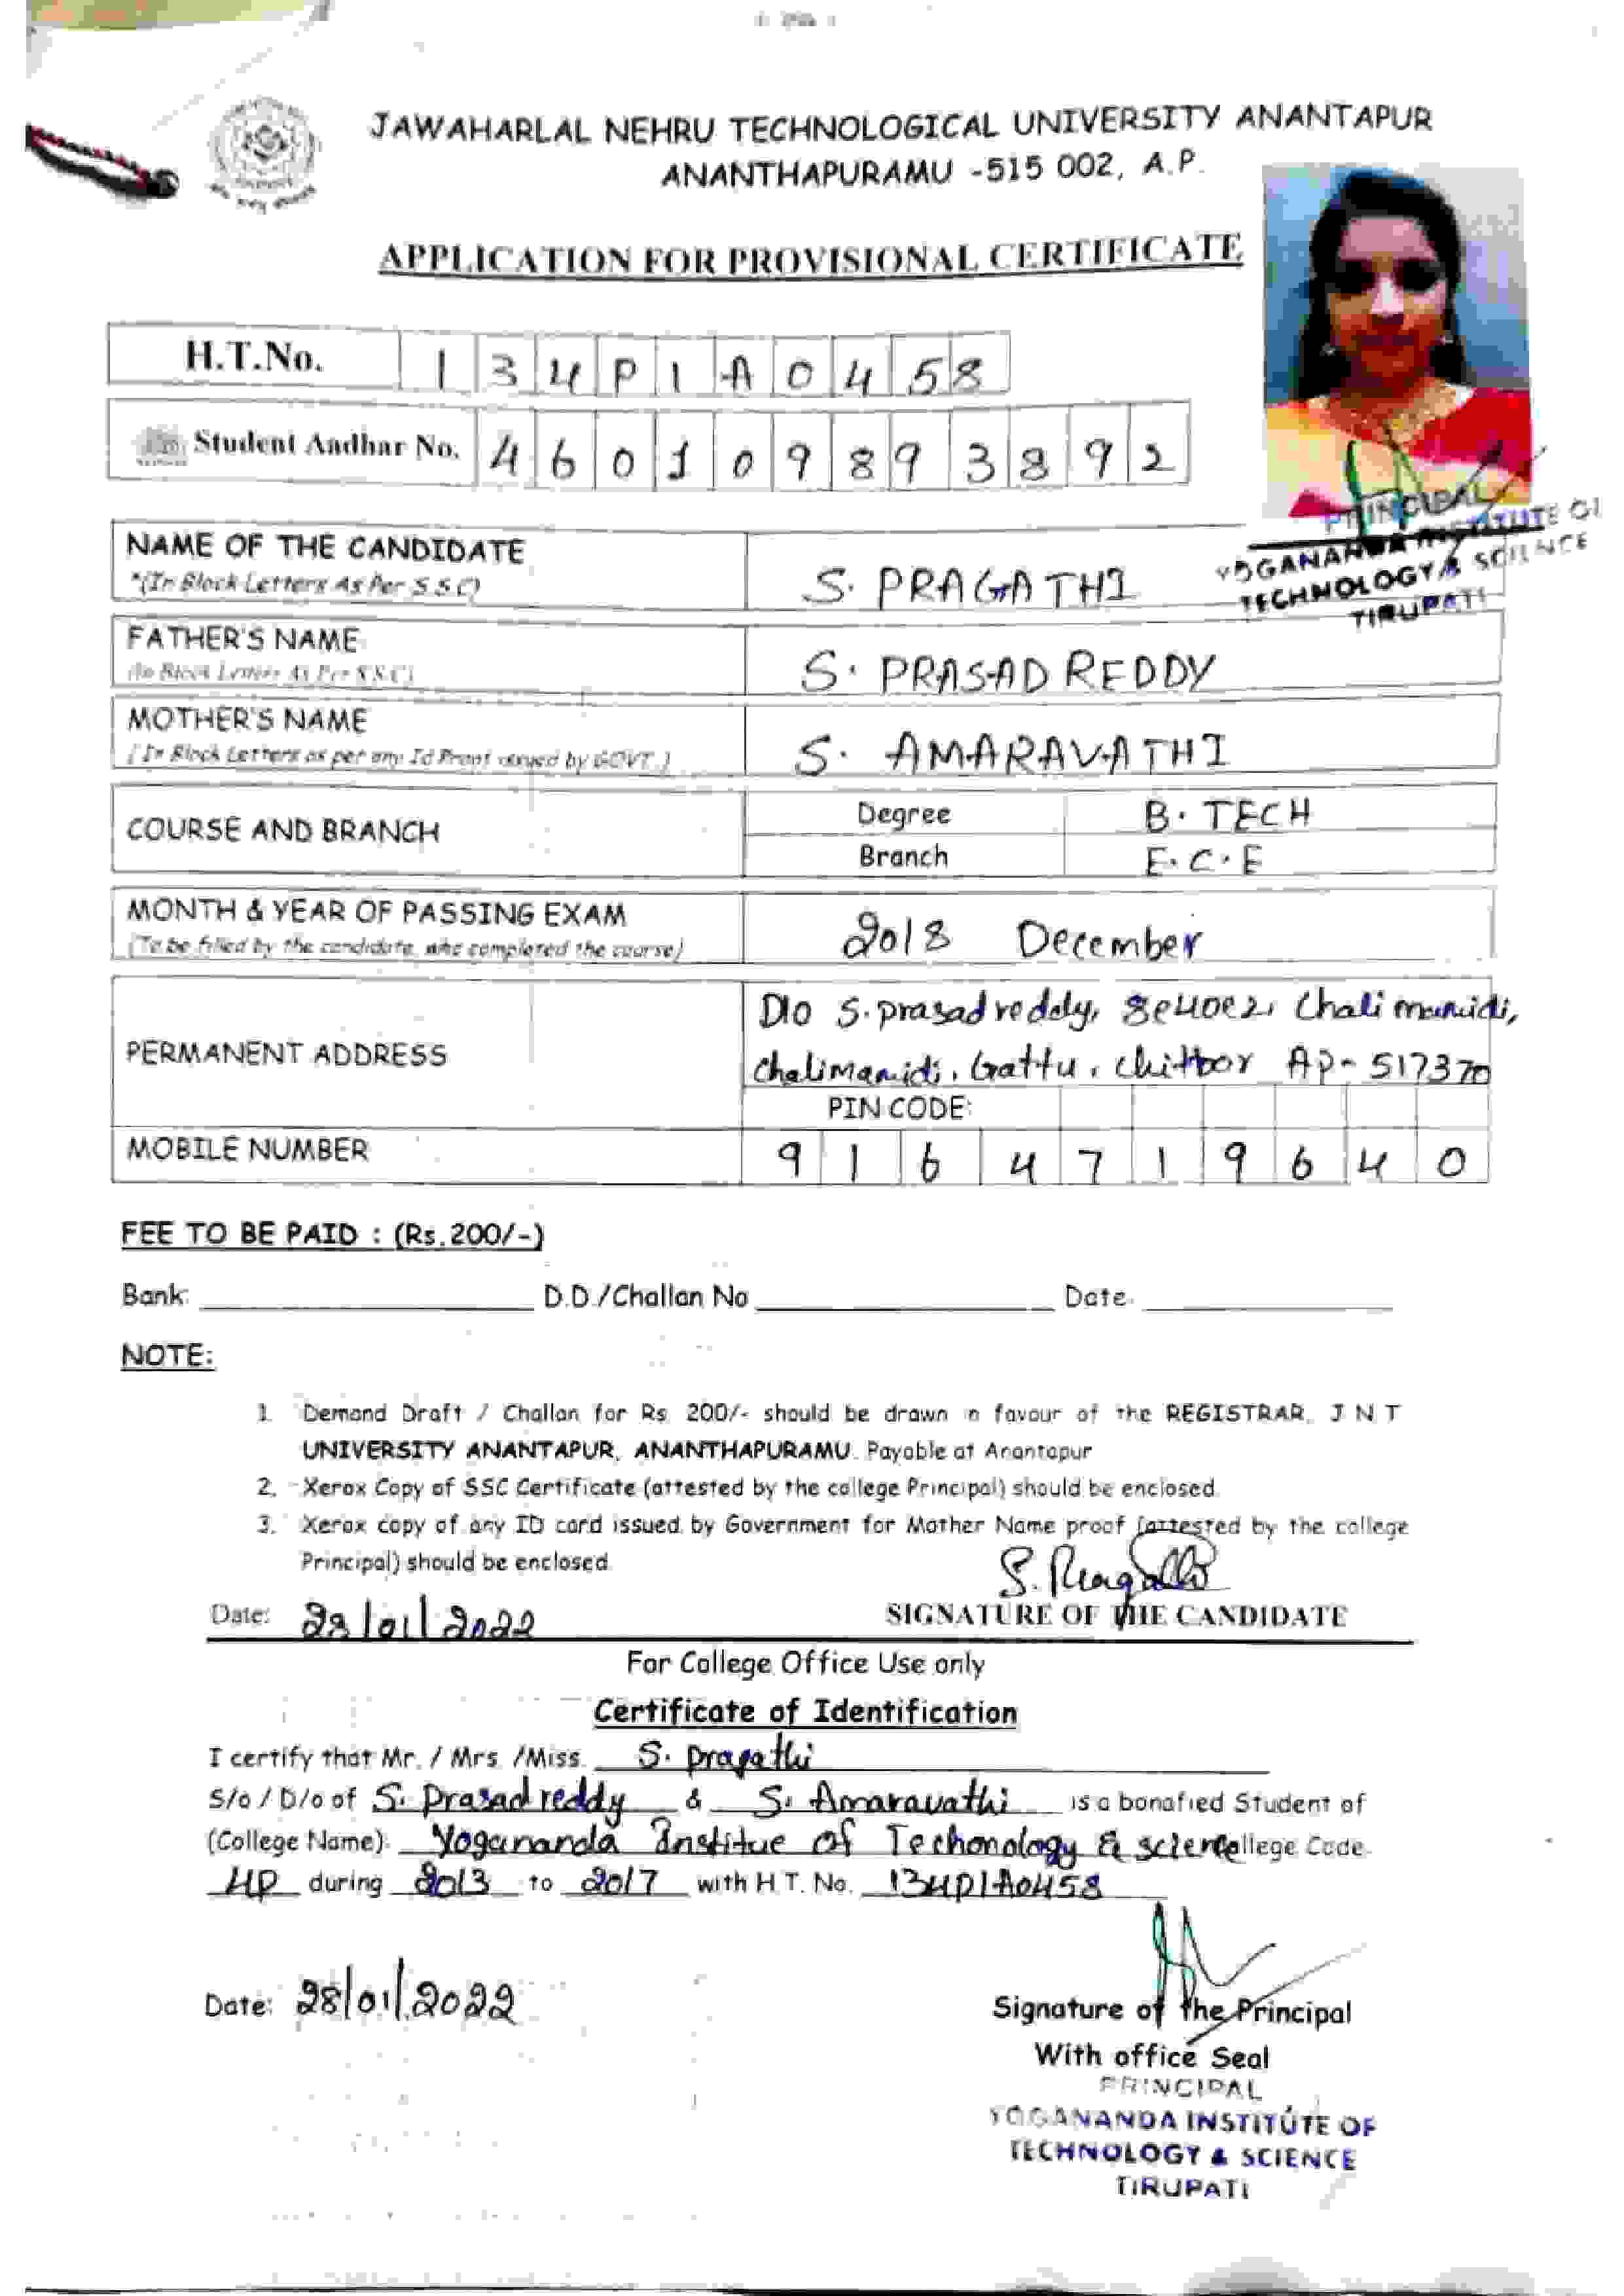 JAWAHARLAL NEHRU TECHNOLOGICAL UNIVERSITY ANANTAPUR
ANANTHAPURAMU -515 002, A.P.
APPLICATION FOR PROVISIONAL CERTIFICATE
H.T.No. 134P1A0458
Student Aadhar No. 460109893892
PRINCIPAL
YOGANANDA INSTITUTE OF
TECHNOLOGY & SCIENCE
TIRUPATI
NAME OF THE CANDIDATE S. PRAGATHI
*(In Block Letters As Per S.S.C)
FATHER'S NAME S. PRASAD REDDY
(In Block Letters As Per S.S.C)
MOTHER'S NAME S. AMARAVATHI
(In Block Letters as per any Id Proof issued by GOVT.)
COURSE AND BRANCH
Degree B. TECH
Branch E.C.E
MONTH & YEAR OF PASSING EXAM 2018 December
(To be filled by the candidate, who completed the course)
PERMANENT ADDRESS
D/o S. prasad reddy, Chalimamidi,
Chalimamidi, Gattu, Chittoor AP- 517370
PIN CODE:
MOBILE NUMBER 9164719640
FEE TO BE PAID : (Rs.200/-)
Bank: D.D./Challan No Date:
NOTE:
1. Demand Draft / Challan for Rs 200/- should be drawn in favour of the REGISTRAR, J N T
UNIVERSITY ANANTAPUR, ANANTHAPURAMU. Payable at Anantapur
2. Xerox Copy of SSC Certificate (attested by the college Principal) should be enclosed.
3. Xerox copy of any ID card issued by Government for Mother Name proof (attested by the college
Principal) should be enclosed.
S. Pragathi
Date: 28/01/2022 SIGNATURE OF THE CANDIDATE
For College Office Use only
Certificate of Identification
I certify that Mr. / Mrs /Miss. S. pragathi
S/o / D/o of S. Prasad reddy & S. Amaravathi is a bonafied Student of
(College Name) Yogananda Institue of Techonology & science College Code
4P during 2013 to 2017 with H.T. No. 134P1A0458
Date: 28/01/2022
Signature of the Principal
With office Seal
PRINCIPAL
YOGANANDA INSTITUTE OF
TECHNOLOGY & SCIENCE
TIRUPATI